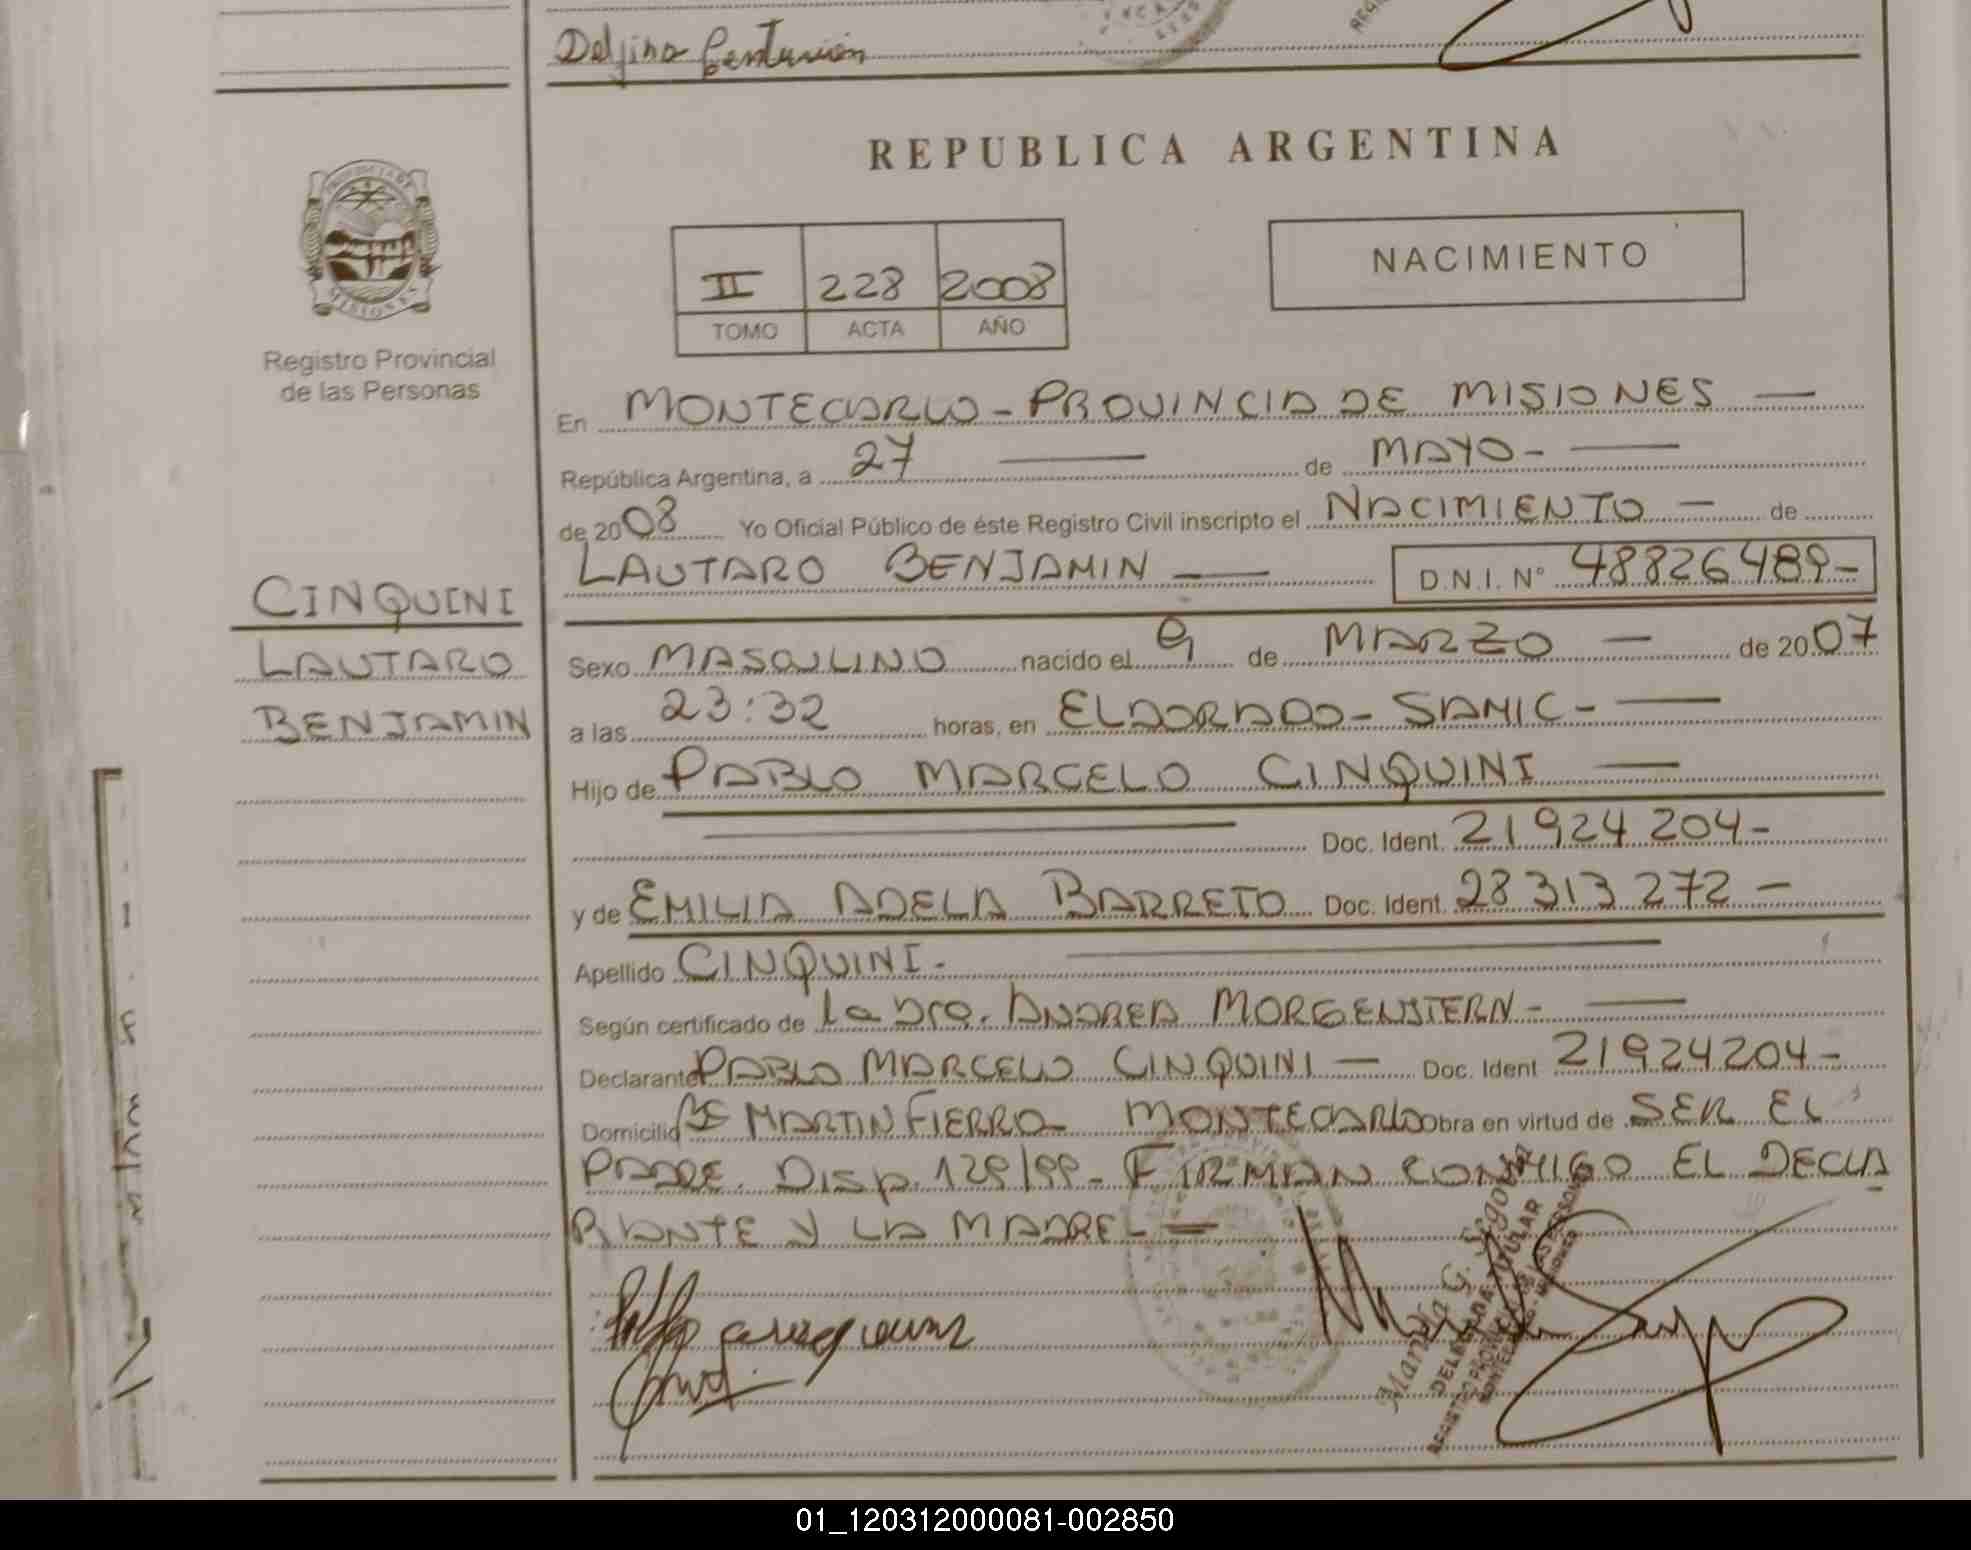 Delfina Centurión
REPUBLICA ARGENTINA
PROVINCIA DE
MISIONES
Registro Provincial
de las Personas
NACIMIENTO
II 228 2008
TOMO ACTA AÑO
En MONTECARLO - PROVINCIA DE MISIONES —
República Argentina, a 27 — de MAYO - —
de 2008 Yo Oficial Público de éste Registro Civil inscripto el NACIMIENTO — de
LAUTARO BENJAMIN — D.N.I. N° 48826489-
CINQUINI
LAUTARO
BENJAMIN
Sexo MASCULINO nacido el 9 de MARZO — de 2007
a las 23:32 horas, en ELDORADO - SAMIC - —
Hijo de PABLO MARCELO CINQUINI —
Doc. Ident. 21924204-
y de EMILIA ADELA BARRETO Doc. Ident. 28313272 -
Apellido CINQUINI.
Según certificado de La Dra. ANDREA MORGENSTERN - —
Declarante PABLO MARCELO CINQUINI — Doc. Ident 21924204-
Domicilio Bº MARTIN FIERRO - MONTECARLO obra en virtud de SER EL
PADRE. Disp. 129/99 - FIRMAN CONMIGO EL DECLA
RANTE Y LA MADRE
DELEGADA TITULAR
01_120312000081-002850